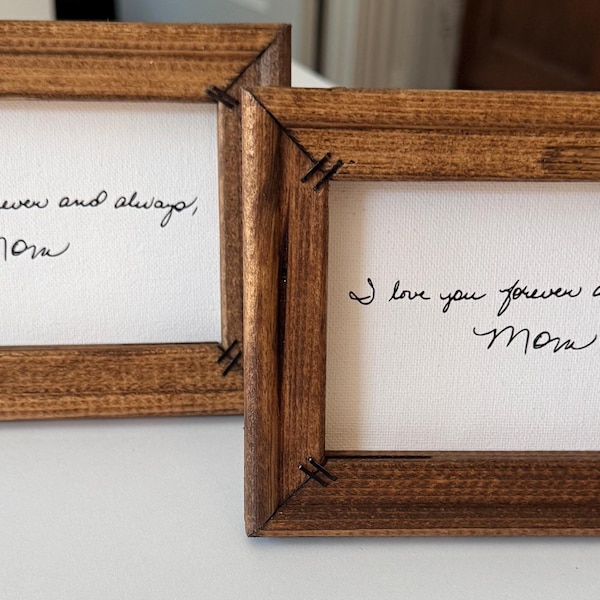 ever and always,
Mom
I love you forever a
Mom